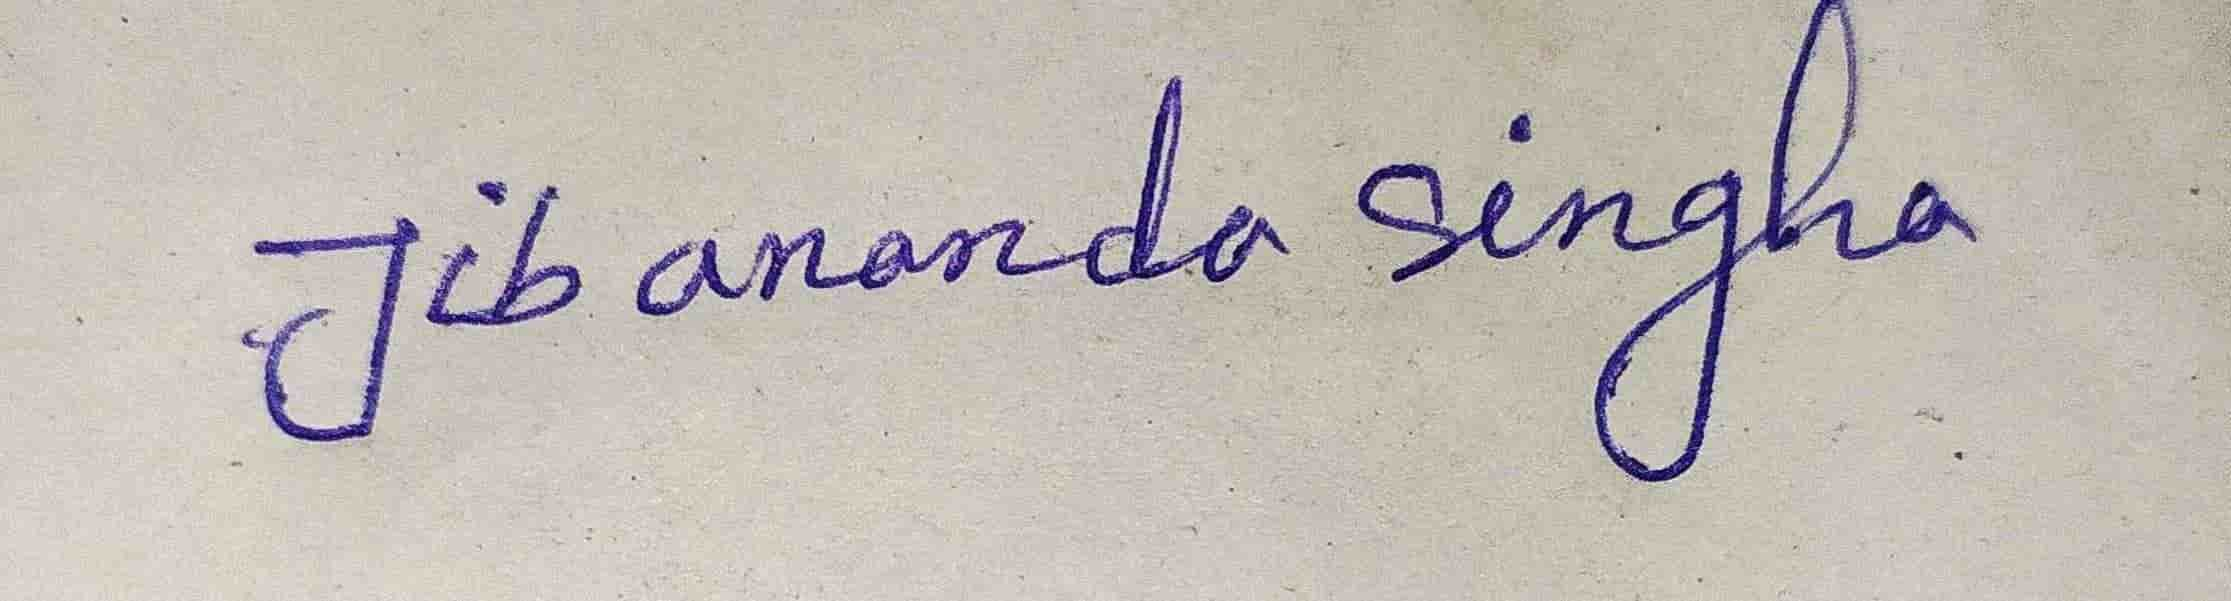 Jibananda Singha